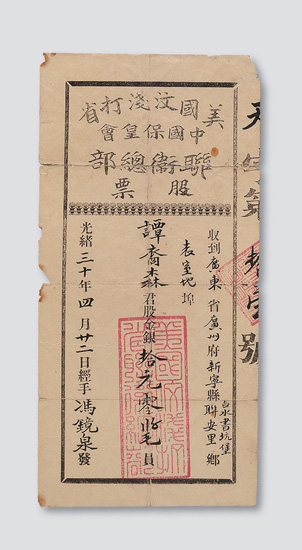 美國汶淺打省
中國保皇會
聯衛總部
股票
字第拾壹號
取到廣東省廣州府新寧縣聯安里鄉
書坑堡
表室地埠
譚裔森君股金銀拾元零 員
光緒三十年四月廿二日經手馮鏡泉發